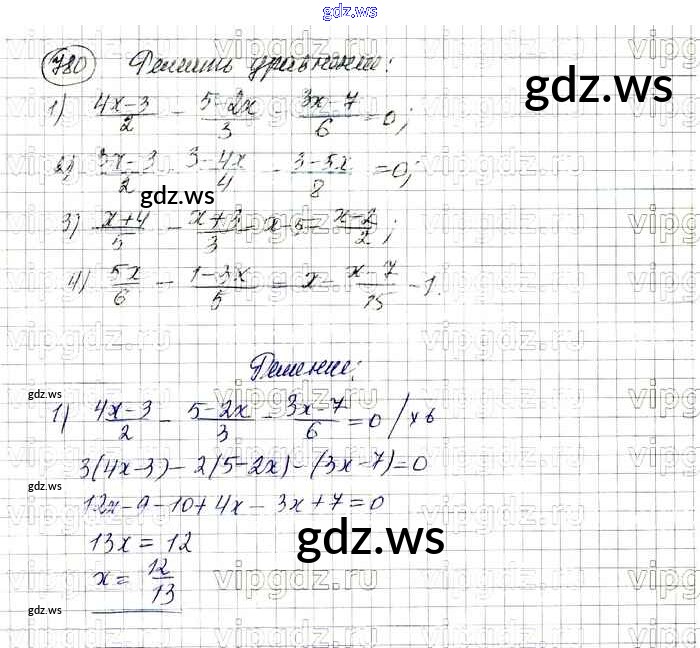 gdz.ws
780 Решить уравнения:
gdz.ws
1) (4x-3)/2 - (5-2x)/3 (3x-7)/6 = 0;
2) (3x-3)/2 (3-4x)/4 - (3-5x)/8 = 0;
gdz.ws
3) (x+4)/5 - (x+3)/3 - x-5 - (x-2)/2;
4) 5x/6 - (1-3x)/5 = x - (x-7)/15 - 1.
Решение:
gdz.ws
1) (4x-3)/2 - (5-2x)/3 - (3x-7)/6 = 0 / x 6
3(4x-3) - 2(5-2x) - (3x-7) = 0
gdz.ws
12x - 9 - 10 + 4x - 3x + 7 = 0
gdz.ws
13x = 12
x = 12/13
gdz.ws
vipgdz.ru